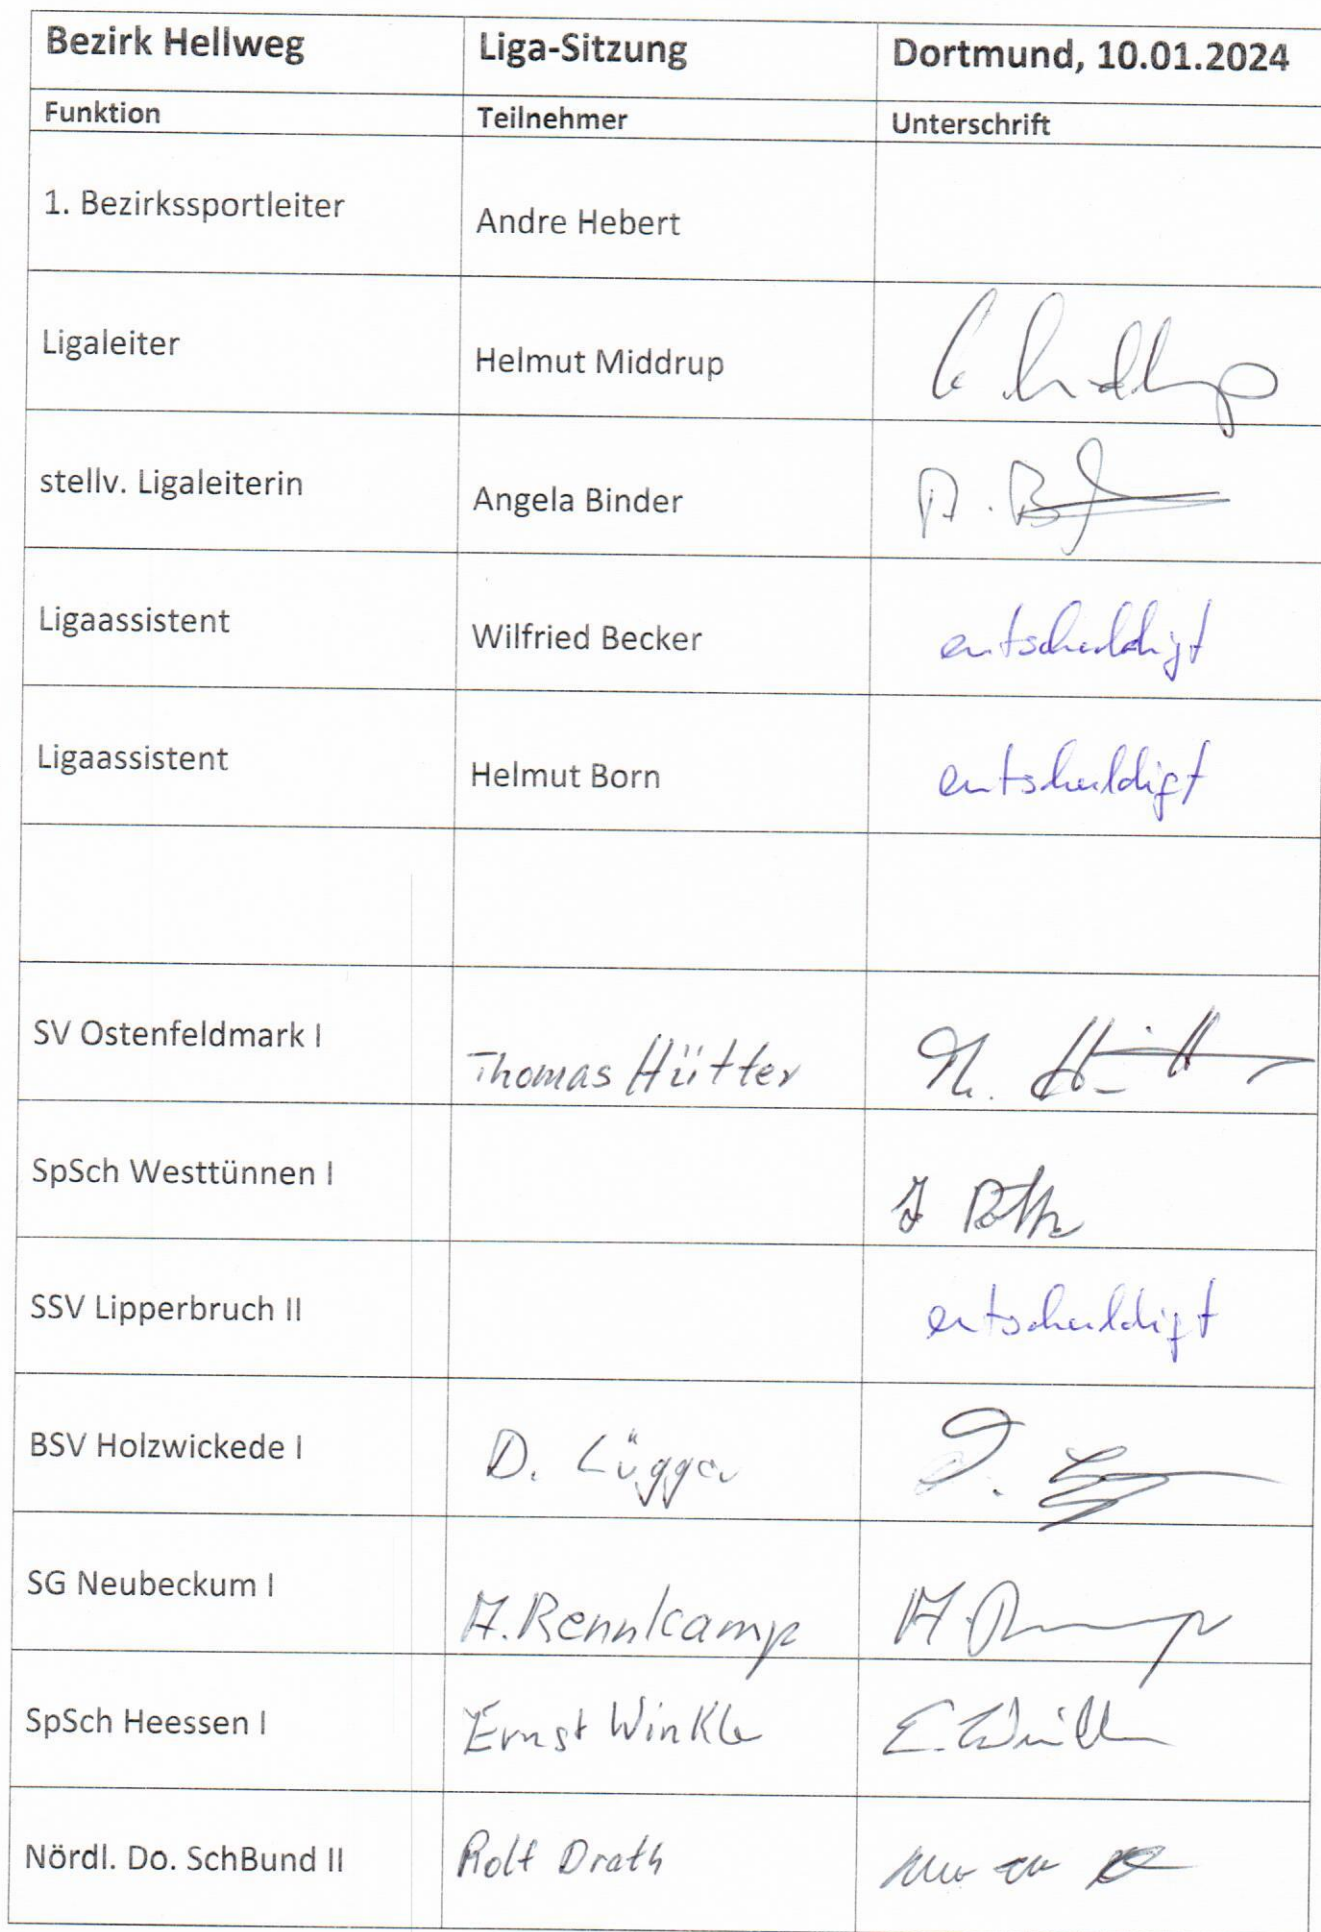 Bezirk Hellweg Liga-Sitzung Dortmund, 10.01.2024
Funktion Teilnehmer Unterschrift
1. Bezirkssportleiter Andre Hebert
Ligaleiter Helmut Middrup
stellv. Ligaleiterin Angela Binder A. B
Ligaassistent Wilfried Becker entschuldigt
Ligaassistent Helmut Born entschuldigt
SV Ostenfeldmark I Thomas Hütter Th. Hütter
SpSch Westtünnen I
SSV Lipperbruch II entschuldigt
BSV Holzwickede I D. Lügger D.
SG Neubeckum I A. Rennkamp A.
SpSch Heessen I Ernst Winkler E. Winkler
Nördl. Do. SchBund II Rolf Drath